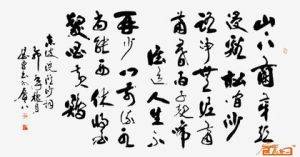 山下蘭芽短
浸溪松間沙
路淨無泥蕭
蕭暮雨子規啼
誰道人生無
再少門前流水
尚能西休將白
髮唱黃雞
東坡浣溪沙詞